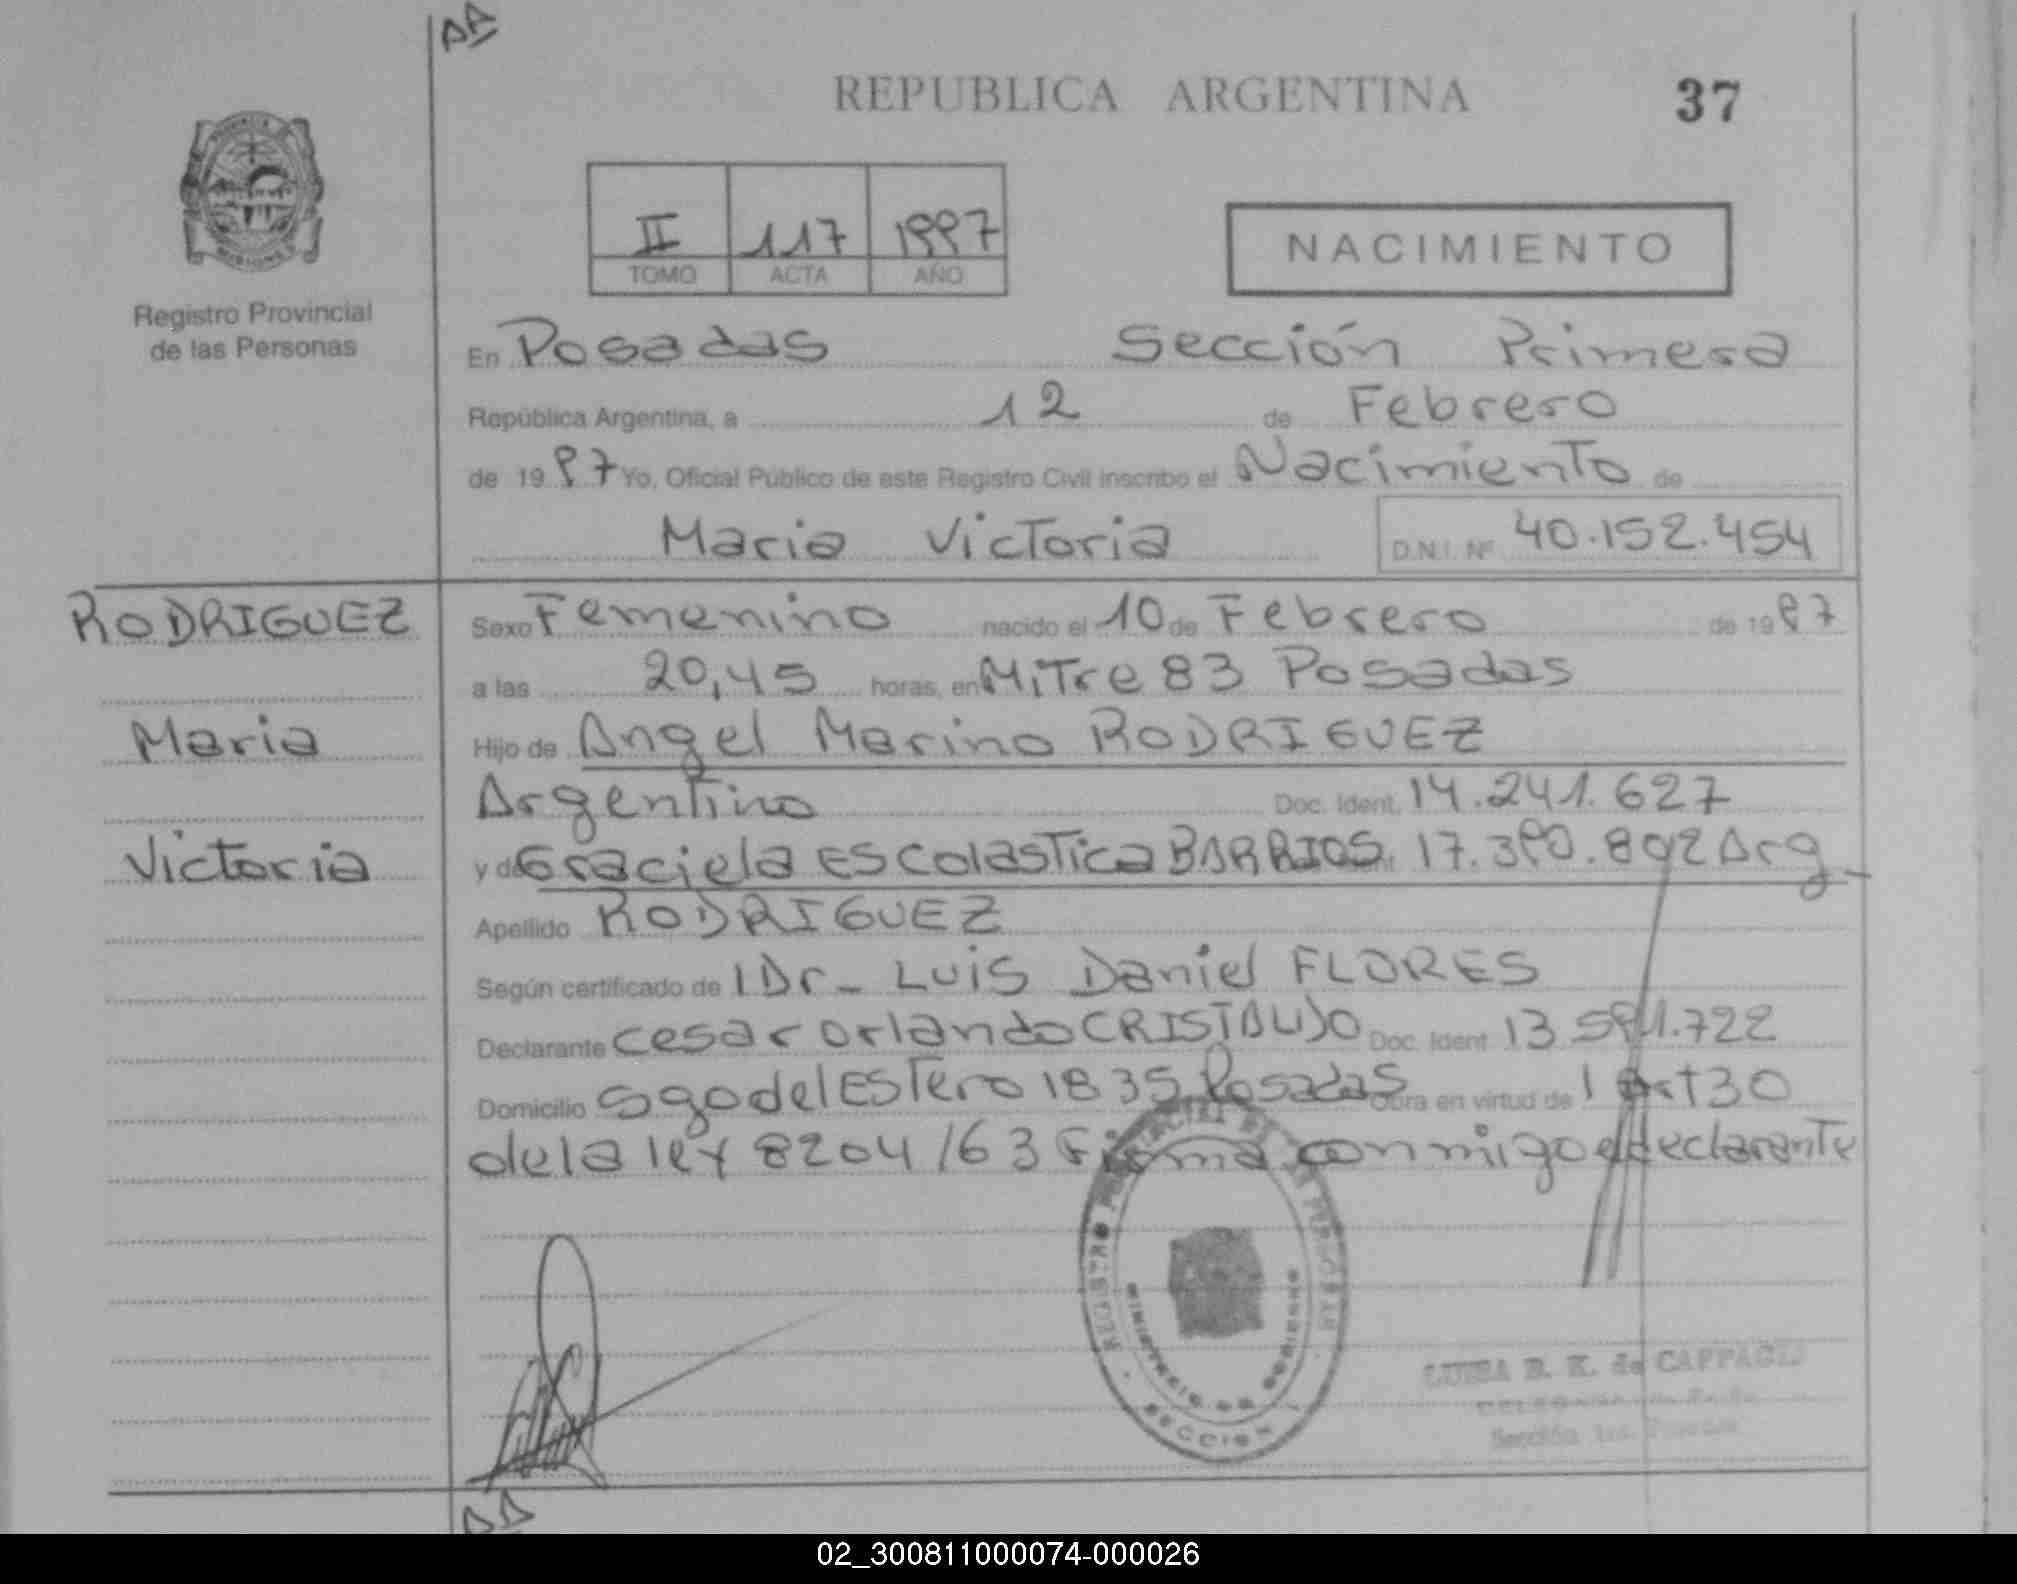 REPUBLICA ARGENTINA 37
II 117 1997
TOMO ACTA AÑO
NACIMIENTO
Registro Provincial
de las Personas
En Posadas Sección Primera
República Argentina, a 12 de Febrero
de 1997 Yo, Oficial Público de este Registro Civil inscribo el Nacimiento de
Maria Victoria D.N.I. Nº 40.152.454
RODRIGUEZ
Maria
Victoria
Sexo Femenino nacido el 10 de Febrero de 1997
a las 20,45 horas, en Mitre 83 Posadas
Hijo de Angel Marino RODRIGUEZ
Argentino Doc. Ident. 14.241.627
y de Graciela EScolastica BARRIOS 17.390.892 Arg.
Apellido RODRIGUEZ
Según certificado de l Dr- Luis Daniel FLORES
Declarante Cesar Orlando CRISTALDO Doc. Ident 13.591.722
Domicilio Sgo del Estero 1835 Posadas Obra en virtud de l Art 30
de la ley 8204/63 Firma conmigo el declarante
REGISTRO PROVINCIAL DE LAS PERSONAS
MINISTERIO DE GOBIERNO
SECCION 1
LUISA B. K. de CAPPAGLI
Sección 1ra. Posadas
02_300811000074-000026